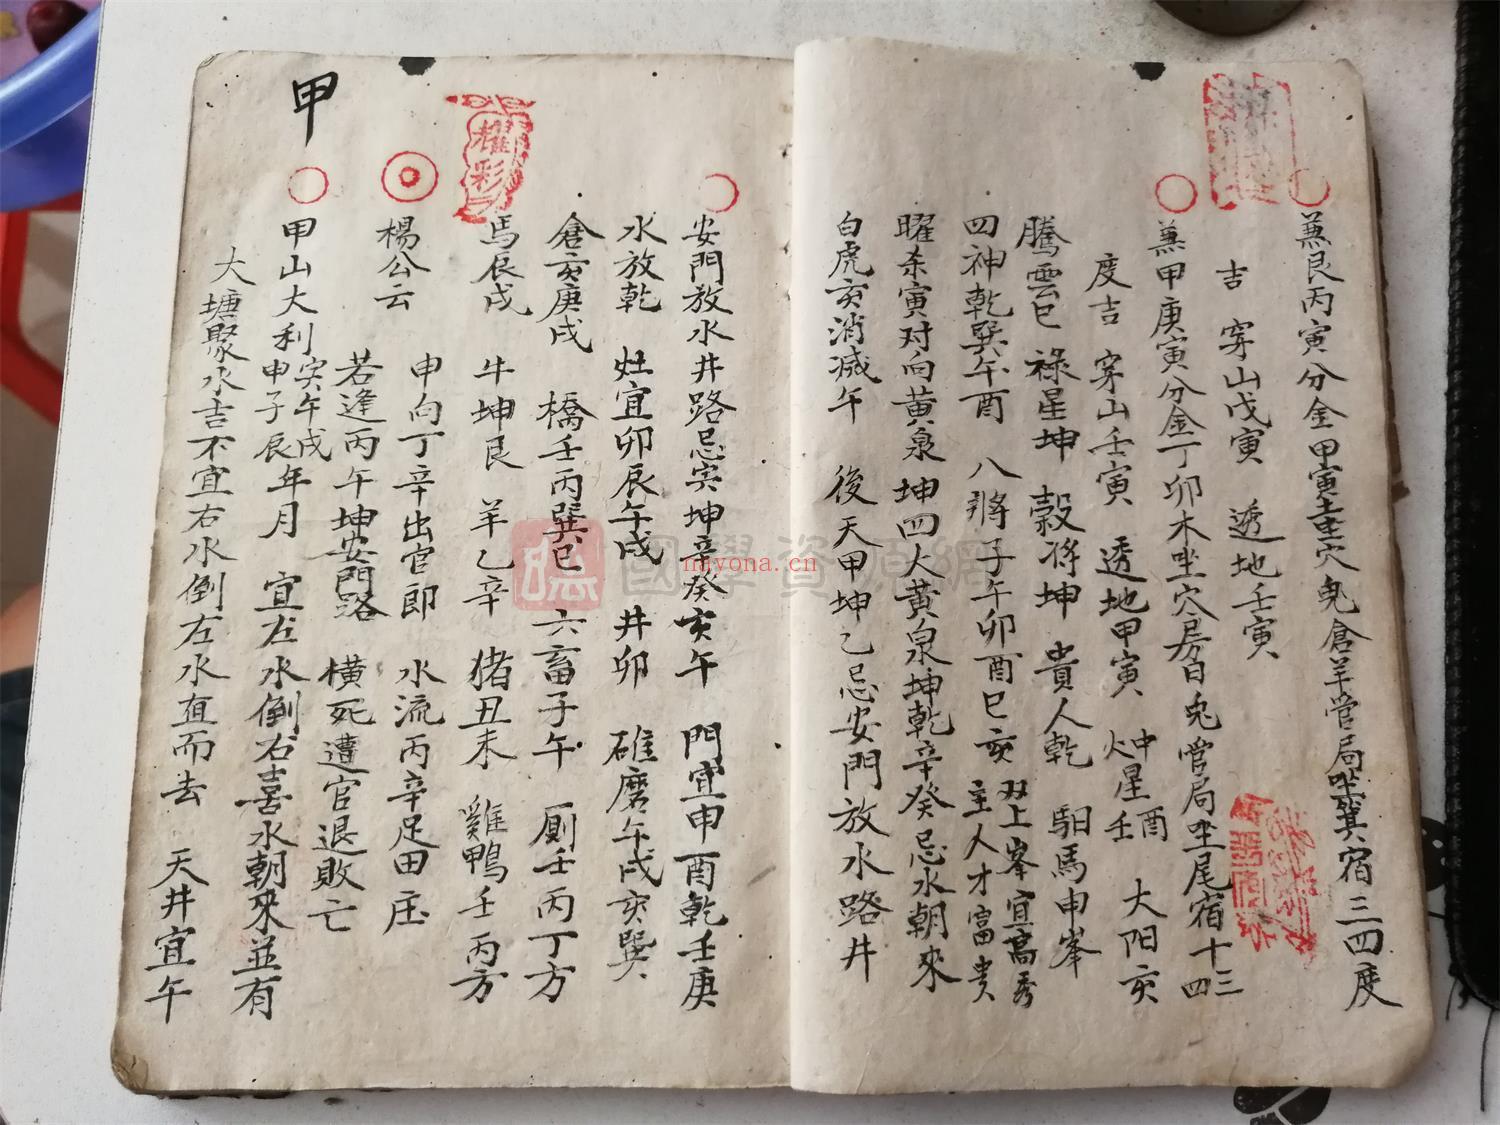 兼艮丙寅分金甲寅 穴鬼倉羊管局坐箕宿三四度
吉 穿山戊寅 透地壬寅
兼甲庚寅分金丁卯木坐穴房日兎管局坐尾宿十三四
度吉 穿山壬寅 透地甲寅 星壬 大阳亥
騰雲巳 祿星坤 穀将坤 貴人乾 馹馬申峯
四神乾巽午酉 八將子午卯酉巳亥 上峯宜高秀 主人才富贵
曜杀寅对向黄泉坤四大黄泉坤乾辛癸忌水朝來
白虎亥消滅午 後天甲坤乙忌安門放水路井
安門放水井路忌寅坤辛癸亥午 門宜申酉乾壬庚
水放乾 灶宜卯辰午戌 井卯 碓磨午戌亥巽
倉亥庚戌 橋壬丙巽巳 六畜子午 厠壬丙丁方
馬辰戌 牛坤艮 羊乙辛 猪丑未 雞鴨壬丙方
楊公云 申向丁辛出官郎 水流丙辛足田庄
若逢丙午坤安門路 橫死遭官退敗亡
甲
甲山大利寅午戌申子辰年月 宜左水倒右喜水朝來並有
大塘聚水吉不宜右水倒左水直而去 天井宜午
耀彩
國學資源網
nayona.cn